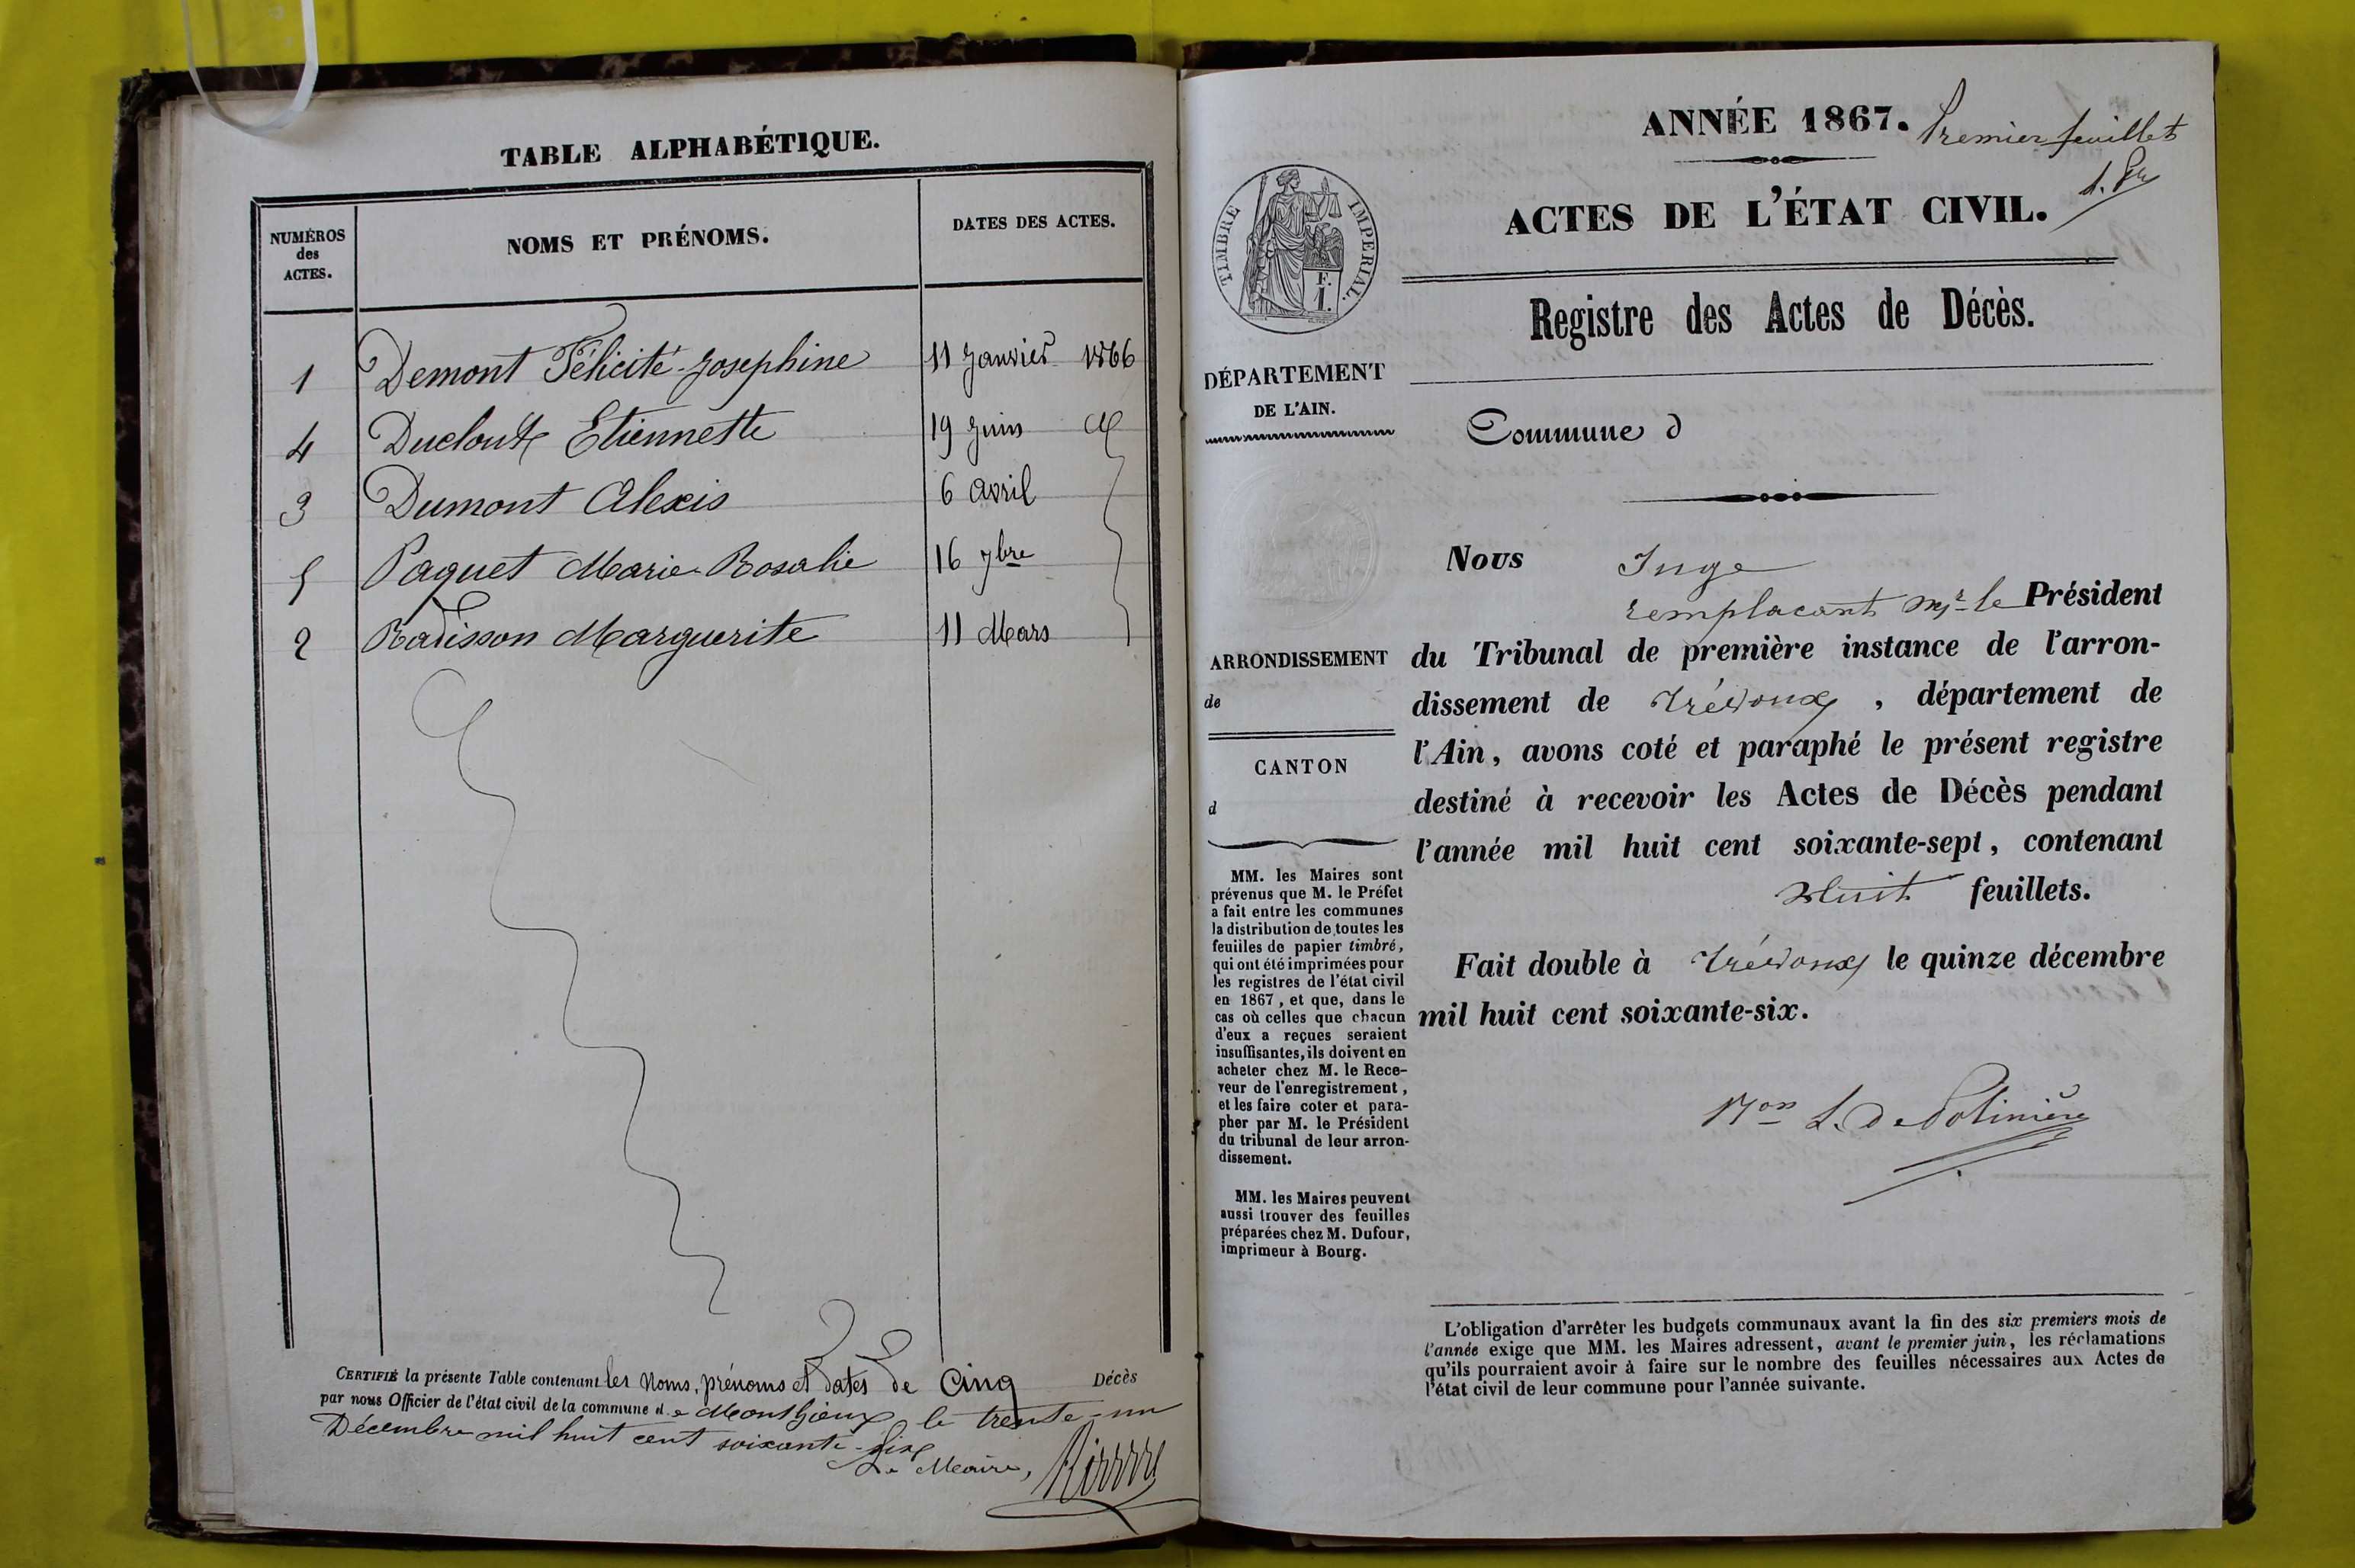 TABLE ALPHABÉTIQUE.
NUMÉROS des ACTES.
NOMS ET PRÉNOMS.
DATES DES ACTES.
1 Demont Félicité Josephine 11 Janvier 1866
4 Etiennette 19 Juin
3 Dumont Alexis 6 Avril
5 Paquet Marie Rosalie 16 7bre
2 Radisson Marguerite 11 Mars
CERTIFIÉ la présente Table contenant les Noms, prénoms et dates de Cinq Décès
par nous Officier de l'état civil de la commune de Monthieux le trente-un
Décembre mil huit cent soixante-six
Le Maire,
ANNÉE 1867. Premier feuillet
ACTES DE L'ÉTAT CIVIL.
TIMBRE IMPERIAL.
F.
I.
Registre des Actes de Décès.
DÉPARTEMENT
DE L'AIN.
Commune d
ARRONDISSEMENT
de
CANTON
d
MM. les Maires sont
prévenus que M. le Préfet
a fait entre les communes
la distribution de toutes les
feuilles de papier timbré,
qui ont été imprimées pour
les registres de l'état civil
en 1867, et que, dans le
cas où celles que chacun
d'eux a reçues seraient
insuffisantes, ils doivent en
acheter chez M. le Rece-
veur de l'enregistrement,
et les faire coter et para-
pher par M. le Président
du tribunal de leur arron-
dissement.
MM. les Maires peuvent
aussi trouver des feuilles
préparées chez M. Dufour,
imprimeur à Bourg.
Nous Juge
remplacant Mr le Président
du Tribunal de première instance de l'arron-
dissement de Trévoux, département de
l'Ain, avons coté et paraphé le présent registre
destiné à recevoir les Actes de Décès pendant
l'année mil huit cent soixante-sept, contenant
Huit feuillets.
Fait double à Trévoux le quinze décembre
mil huit cent soixante-six.
Bon L. de Polinière
L'obligation d'arrêter les budgets communaux avant la fin des six premiers mois de
l'année exige que MM. les Maires adressent, avant le premier juin, les réclamations
qu'ils pourraient avoir à faire sur le nombre des feuilles nécessaires aux Actes de
l'état civil de leur commune pour l'année suivante.